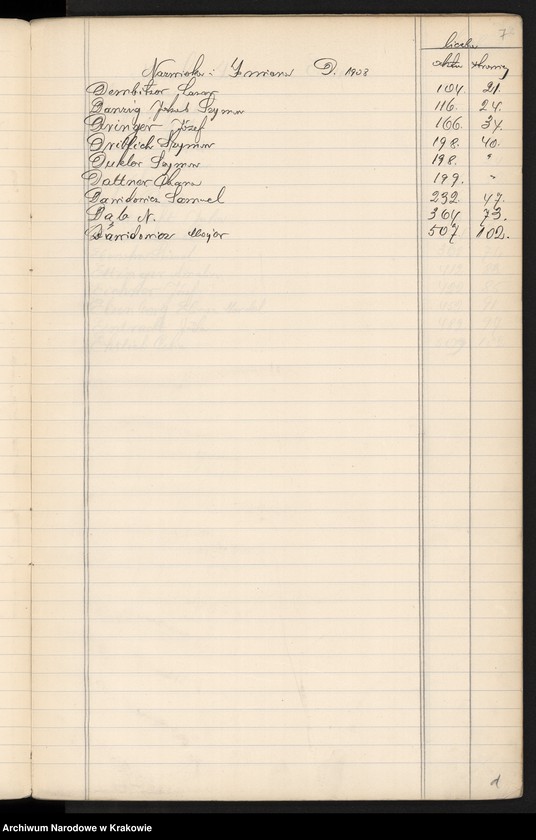 7
liczba
Aktu strony
Nazwisko i Imiona D. 1908
Dembitzer Lazar 104. 21.
Danzig Jakob Szymon 116. 24.
Deringer Józef 166. 34.
Dritlich Szymon 198. 40.
Duklor Szymon 198. "
Dattner Chana 199. "
Dawidowicz Samuel 232. 47.
Dąb N. 364. 73.
Dawidowicz Mojżer 507. 102.
d
Archiwum Narodowe w Krakowie